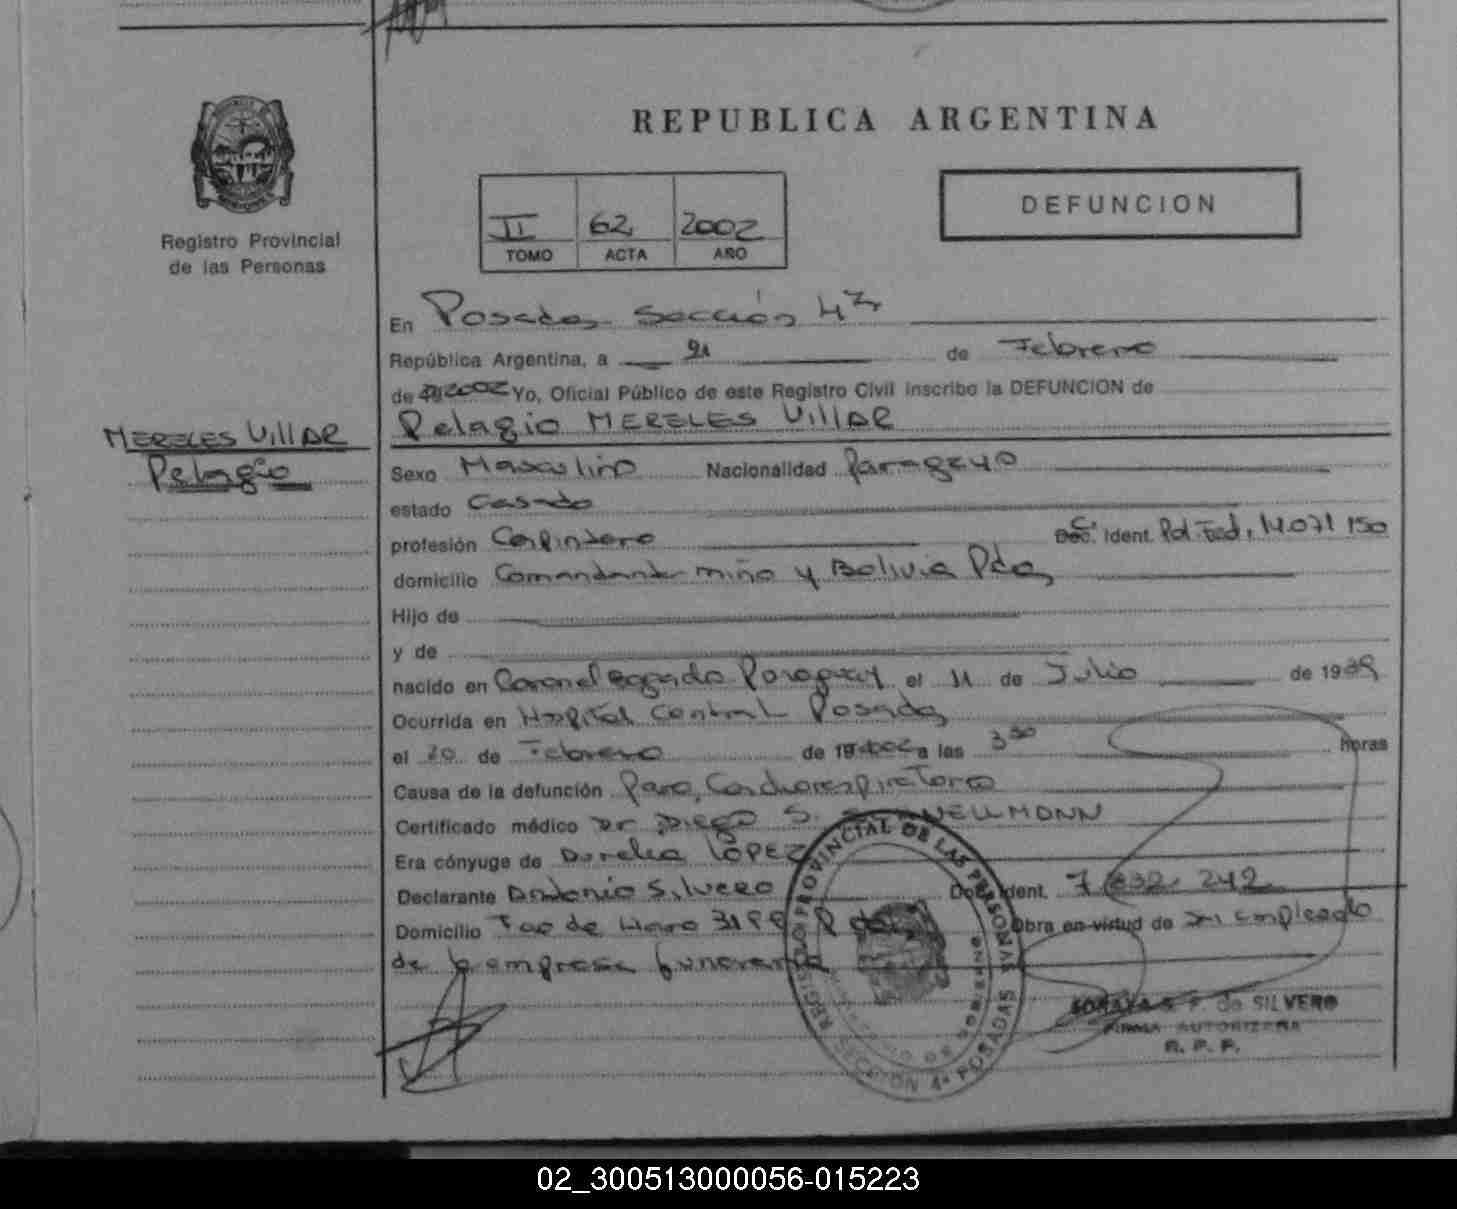 REPUBLICA ARGENTINA
Registro Provincial
de las Personas
II 62 2002
TOMO ACTA AÑO
DEFUNCION
En Posadas Sección 4ta
República Argentina, a 21 de Febrero
de 2002 Yo, Oficial Público de este Registro Civil inscribo la DEFUNCION de
Pelagio MERELES VILLAR
MERELES VILLAR
Pelagio
Sexo Masculino Nacionalidad Paraguayo
estado Casado
profesión Carpintero C. Ident. Pol. Fed. 14.071 150
domicilio Comandante Miño y Bolivia Pdas
Hijo de
y de
nacido en Coronel Bogado Paraguay el 11 de Julio de 1939
Ocurrida en Hospital Central Posadas
el 20 de Febrero de 2002 a las 3 30 horas
Causa de la defunción Paro Cardiorespiratorio
Certificado médico Dr Diego S.
Era cónyuge de Aurelia LOPEZ
Declarante Antonio Silvero Doc. Ident. 7 832 242
Domicilio Fco de Haro Pdas Obra en virtud de ser empleado
de la empresa funeraria
REGISTRO PROVINCIAL DE LAS PERSONAS
SECCION 4ª POSADAS
SORAYA S. F. de SILVERO
FIRMA AUTORIZADA
R. P. P.
02_300513000056-015223